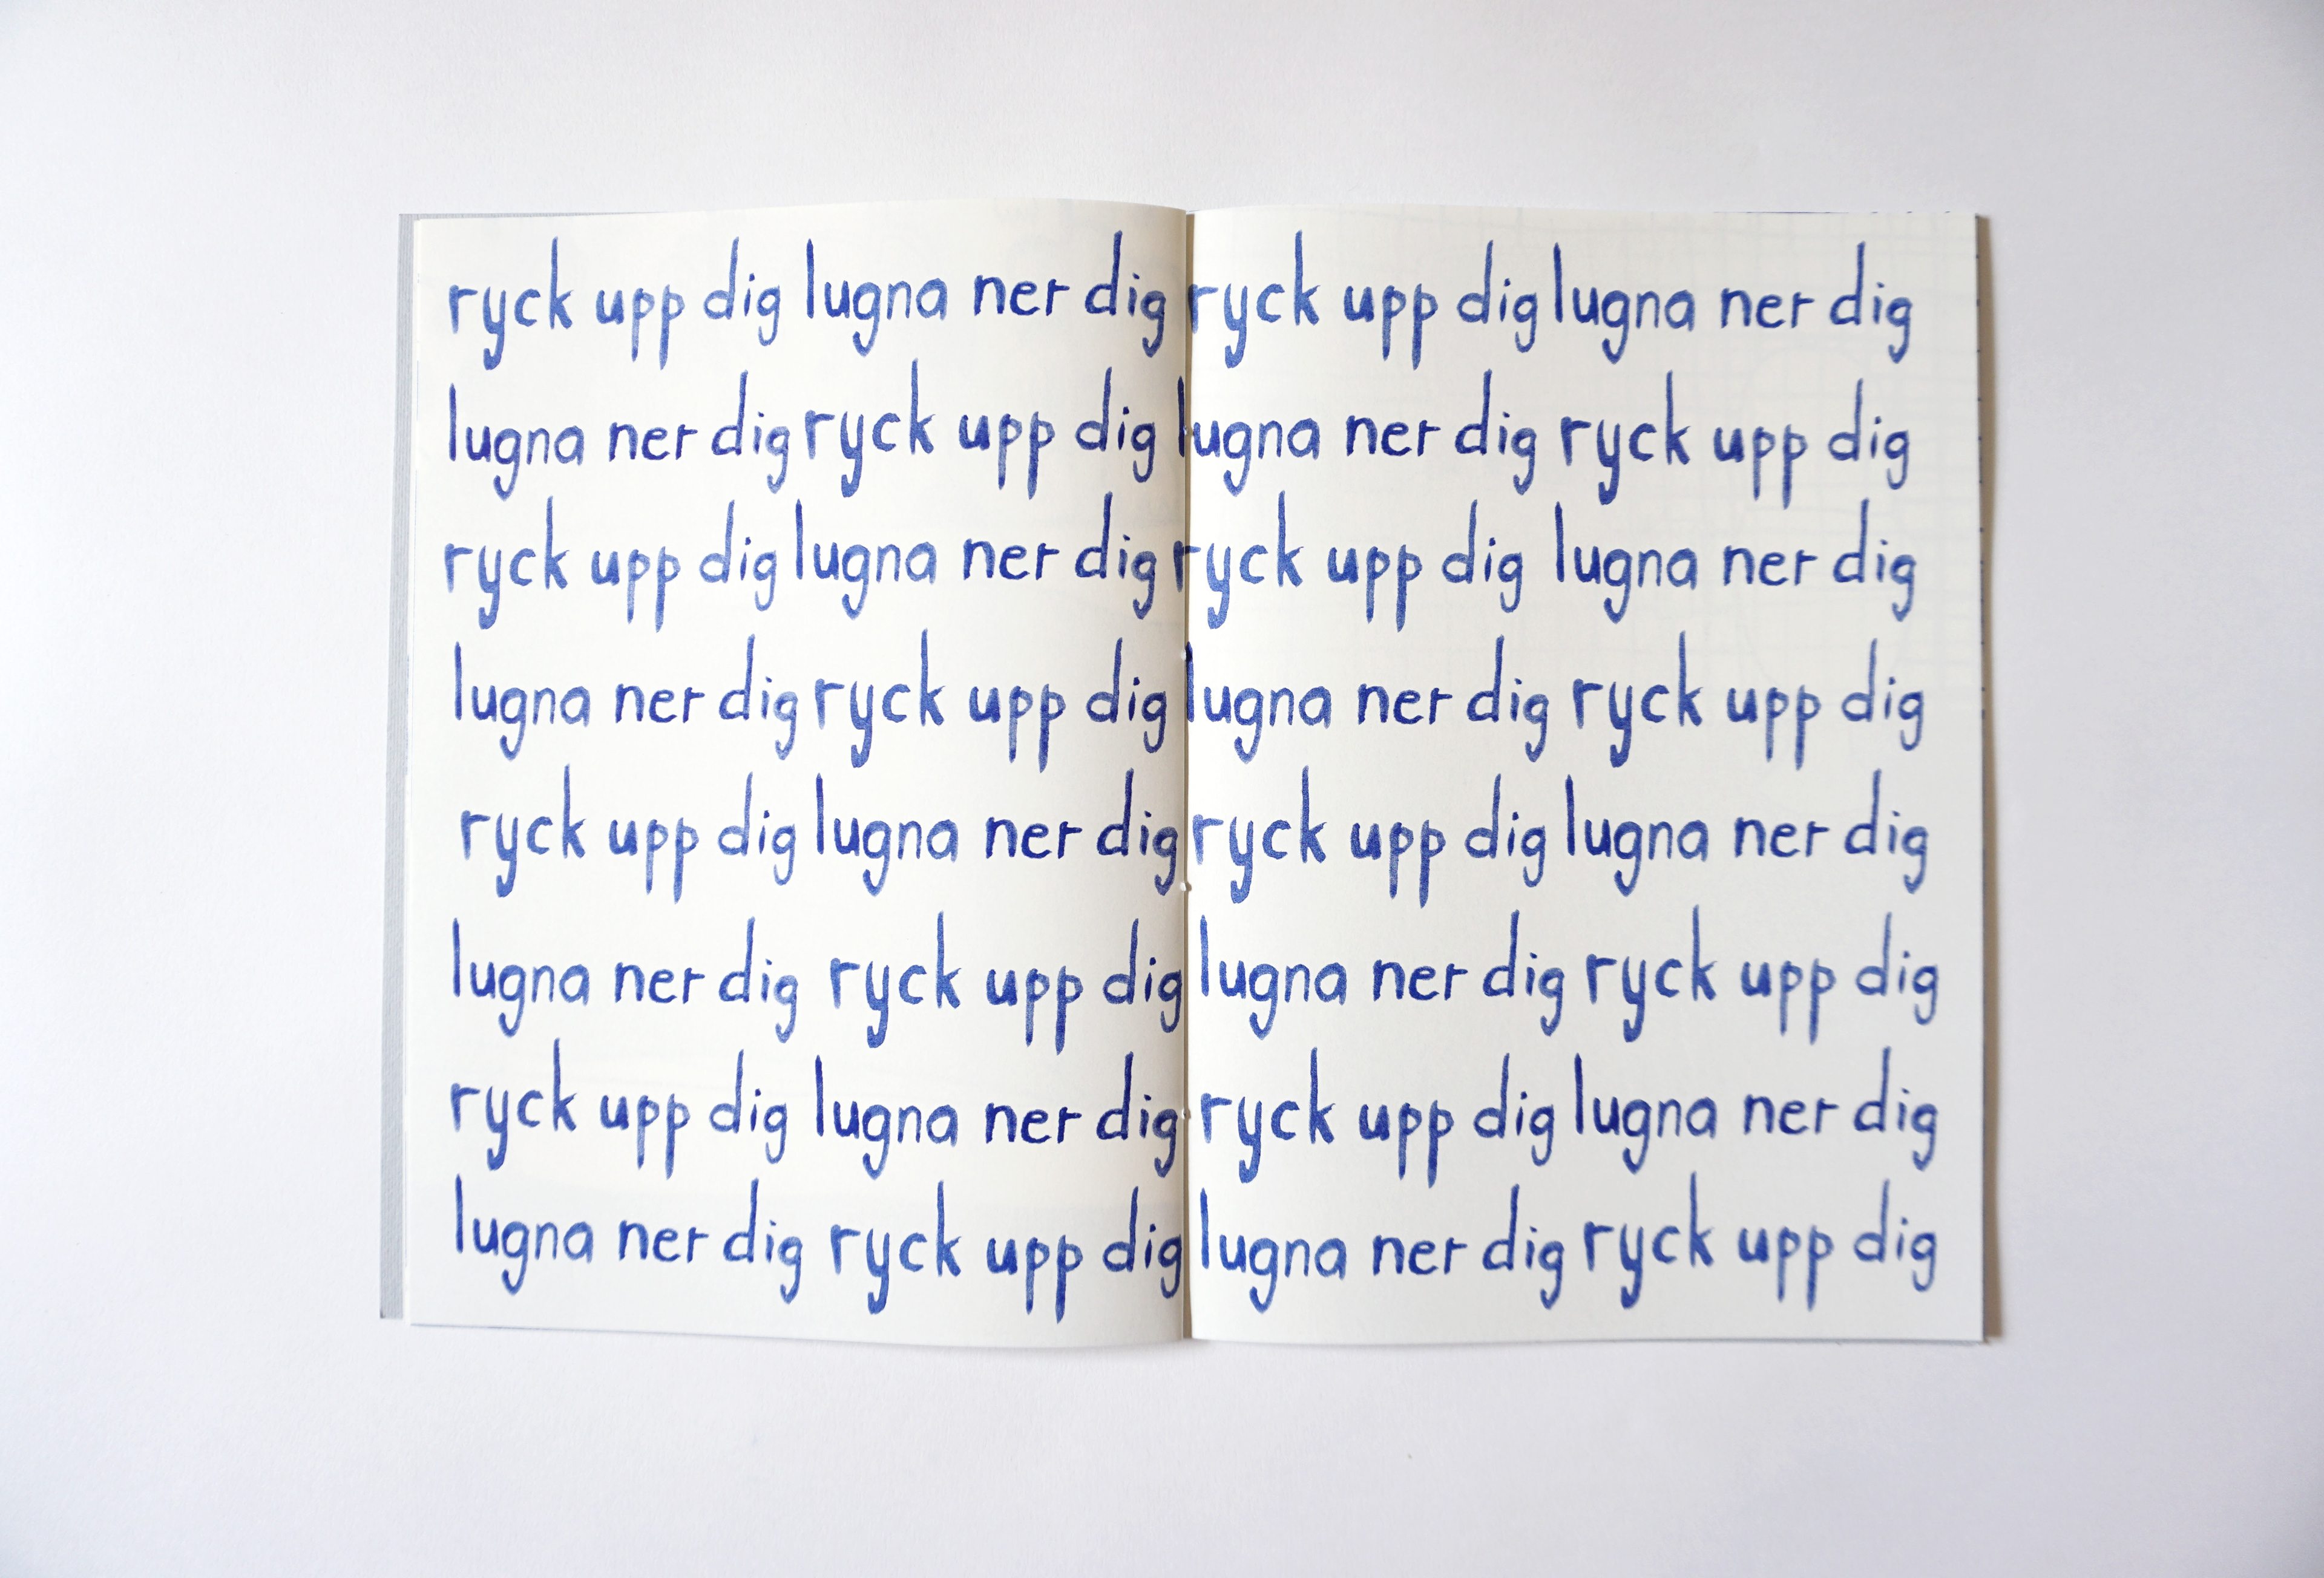 ryck upp dig lugna ner dig ryck upp dig lugna ner dig
lugna ner dig ryck upp dig lugna ner dig ryck upp dig
ryck upp dig lugna ner dig ryck upp dig lugna ner dig
lugna ner dig ryck upp dig lugna ner dig ryck upp dig
ryck upp dig lugna ner dig ryck upp dig lugna ner dig
lugna ner dig ryck upp dig lugna ner dig ryck upp dig
ryck upp dig lugna ner dig ryck upp dig lugna ner dig
lugna ner dig ryck upp dig lugna ner dig ryck upp dig